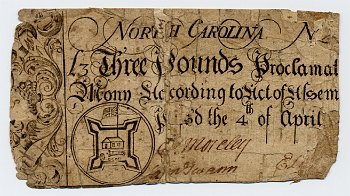 North Carolina N
£3 Three Pounds Proclamat
Mony According to Act of Assem
d the 4th of April
Moseley
Swann